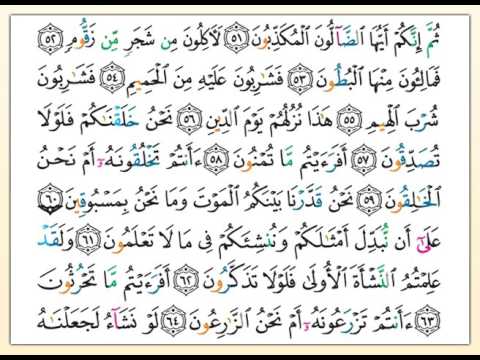 ثُمَّ إِنَّكُمْ أَيُّهَا الضَّآلُّونَ الْمُكَذِّبُونَ ٥١ لَآكِلُونَ مِن شَجَرٍ مِّن زَقُّومٍ ٥٢
فَمَالِـُٔونَ مِنْهَا الْبُطُونَ ٥٣ فَشَٰرِبُونَ عَلَيْهِ مِنَ الْحَمِيمِ ٥٤ فَشَٰرِبُونَ
شُرْبَ الْهِيمِ ٥٥ هَٰذَا نُزُلُهُمْ يَوْمَ الدِّينِ ٥٦ نَحْنُ خَلَقْنَٰكُمْ فَلَوْلَا
تُصَدِّقُونَ ٥٧ أَفَرَءَيْتُم مَّا تُمْنُونَ ٥٨ ءَأَنتُمْ تَخْلُقُونَهُۥٓ أَمْ نَحْنُ
الْخَٰلِقُونَ ٥٩ نَحْنُ قَدَّرْنَا بَيْنَكُمُ الْمَوْتَ وَمَا نَحْنُ بِمَسْبُوقِينَ ٦٠
عَلَىٰٓ أَن نُّبَدِّلَ أَمْثَٰلَكُمْ وَنُنشِئَكُمْ فِى مَا لَا تَعْلَمُونَ ٦١ وَلَقَدْ
عَلِمْتُمُ النَّشْأَةَ الْأُولَىٰ فَلَوْلَا تَذَكَّرُونَ ٦٢ أَفَرَءَيْتُم مَّا تَحْرُثُونَ
٦٣ ءَأَنتُمْ تَزْرَعُونَهُۥٓ أَمْ نَحْنُ الزَّٰرِعُونَ ٦٤ لَوْ نَشَآءُ لَجَعَلْنَٰهُ